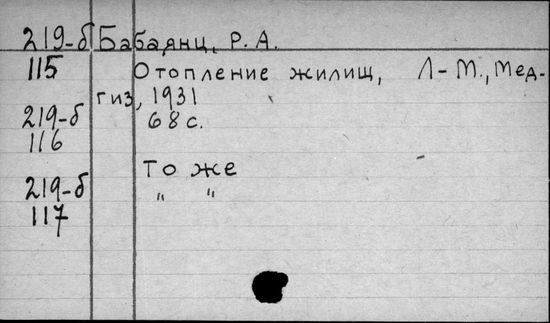 219-б Бабаянц, Р. А.
115 Отопление жилищ, Л-М., Мед-
гиз, 1931
219-б 68 с.
116
То же
219-б " "
117